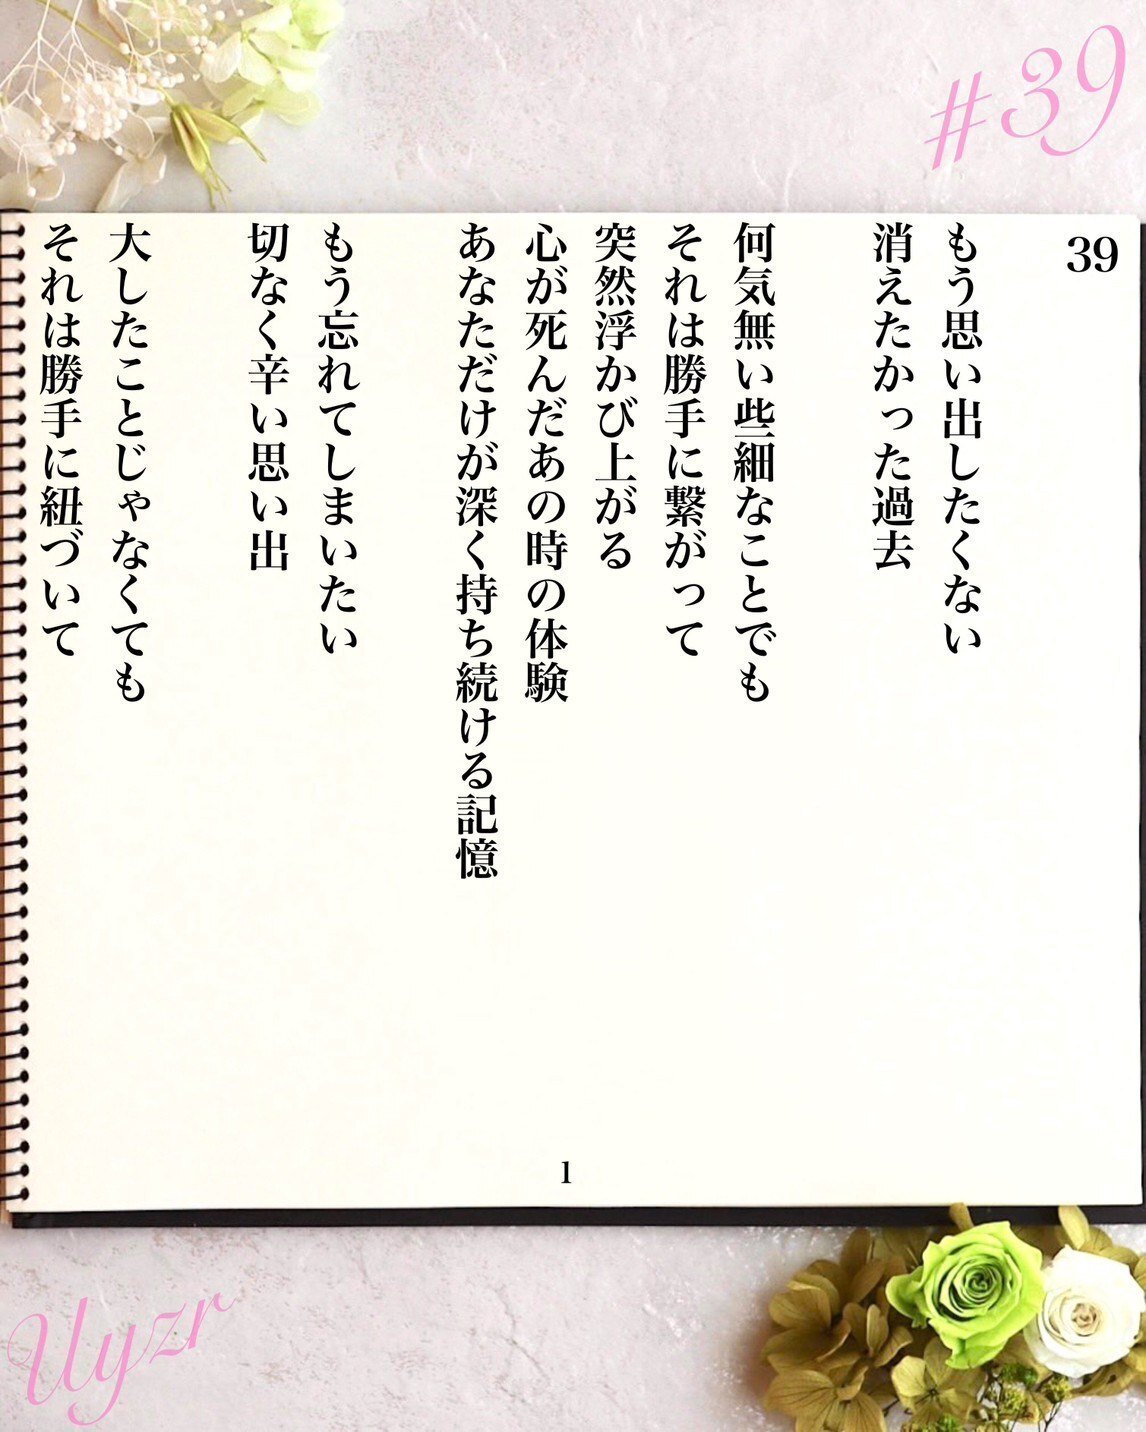 #39
39
もう思い出したくない
消えたかった過去
何気無い些細なことでも
それは勝手に繋がって
突然浮かび上がる
心が死んだあの時の体験
あなただけが深く持ち続ける記憶
もう忘れてしまいたい
切なく辛い思い出
大したことじゃなくても
それは勝手に紐づいて
1
Uyzr